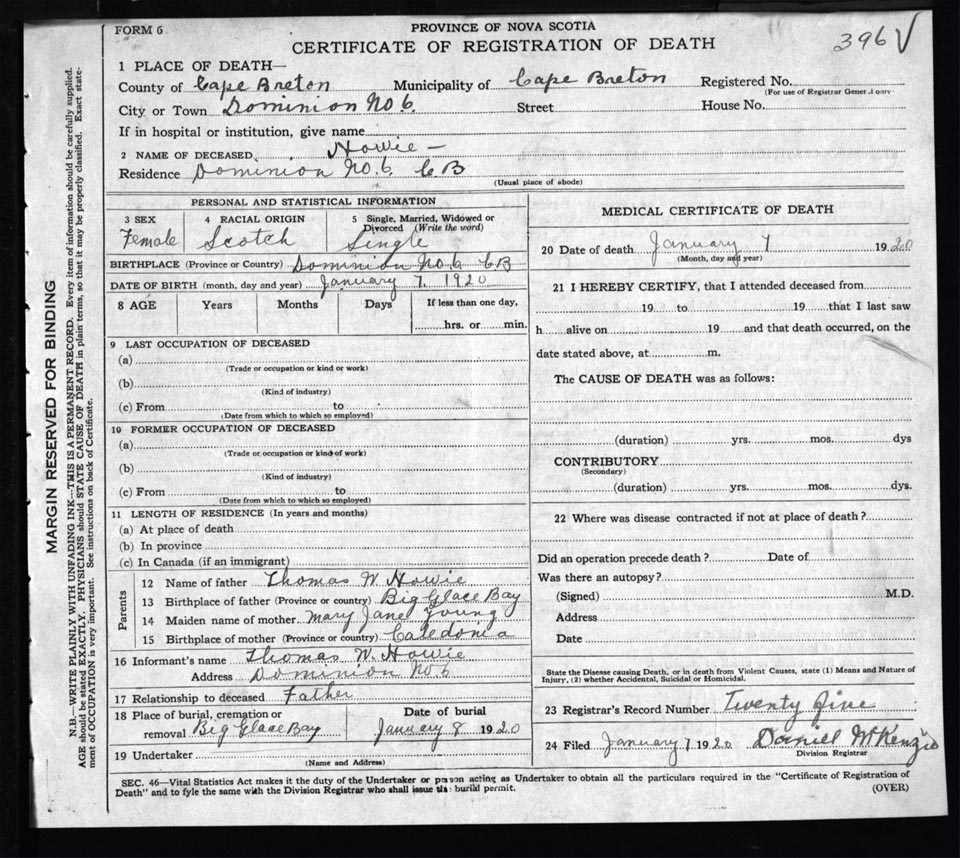 FORM 6
PROVINCE OF NOVA SCOTIA
CERTIFICATE OF REGISTRATION OF DEATH
396 √
1 PLACE OF DEATH—
County of Cape Breton Municipality of Cape Breton Registered No.
(For use of Registrar General only)
City or Town Dominion No 6. Street House No.
If in hospital or institution, give name
2 NAME OF DECEASED. Howie —
Residence Dominion No. 6 C B
(Usual place of abode)
PERSONAL AND STATISTICAL INFORMATION
3 SEX 4 RACIAL ORIGIN 5 Single, Married, Widowed or Divorced (Write the word)
Female Scotch Single
BIRTHPLACE (Province or Country) Dominion No. 6 CB
DATE OF BIRTH (month, day and year) January 7. 1920
8 AGE Years Months Days If less than one day,
hrs. or min.
9 LAST OCCUPATION OF DECEASED
(a)
(Trade or occupation or kind or work)
(b)
(Kind of industry)
(c) From to
(Date from which to which so employed)
10 FORMER OCCUPATION OF DECEASED
(a)
(Trade or occupation or kind of work)
(b)
(Kind of industry)
(c) From to
(Date from which to which so employed)
11 LENGTH OF RESIDENCE (In years and months)
(a) At place of death
(b) In province
(c) In Canada (if an immigrant)
Parents
12 Name of father Thomas W. Howie
13 Birthplace of father (Province or country) Big Glace Bay
14 Maiden name of mother Mary Jane Young
15 Birthplace of mother (Province or country) Caledonia
16 Informant's name Thomas W. Howie
Address Dominion No 6
17 Relationship to deceased Father
18 Place of burial, cremation or removal Big Glace Bay
Date of burial
January 8 1920
19 Undertaker
(Name and Address)
MEDICAL CERTIFICATE OF DEATH
20 Date of death January 7 1920
(Month, day and year)
21 I HEREBY CERTIFY, that I attended deceased from
19 to 19 that I last saw
h alive on 19 and that death occurred, on the
date stated above, at m.
The CAUSE OF DEATH was as follows:
(duration) yrs. mos. dys
CONTRIBUTORY
(Secondary)
(duration) yrs. mos. dys.
22 Where was disease contracted if not at place of death?
Did an operation precede death? Date of
Was there an autopsy?
(Signed) M.D.
Address
Date
State the Disease causing Death, or in death from Violent Causes, state (1) Means and Nature of
Injury, (2) whether Accidental, Suicidal or Homicidal.
23 Registrar's Record Number Twenty five
24 Filed January 7 1920 Daniel McKenzie
Division Registrar
SEC. 46—Vital Statistics Act makes it the duty of the Undertaker or person acting as Undertaker to obtain all the particulars required in the "Certificate of Registration of
Death" and to fyle the same with the Division Registrar who shall issue the burial permit.
(OVER)
MARGIN RESERVED FOR BINDING
N.B.—WRITE PLAINLY WITH UNFADING INK—THIS IS A PERMANENT RECORD. Every item of information should be carefully supplied.
AGE should be stated EXACTLY. PHYSICIANS should STATE CAUSE OF DEATH in plain terms, so that it may be properly classified. Exact state-
ment of OCCUPATION is very important. See instructions on back of Certificate.